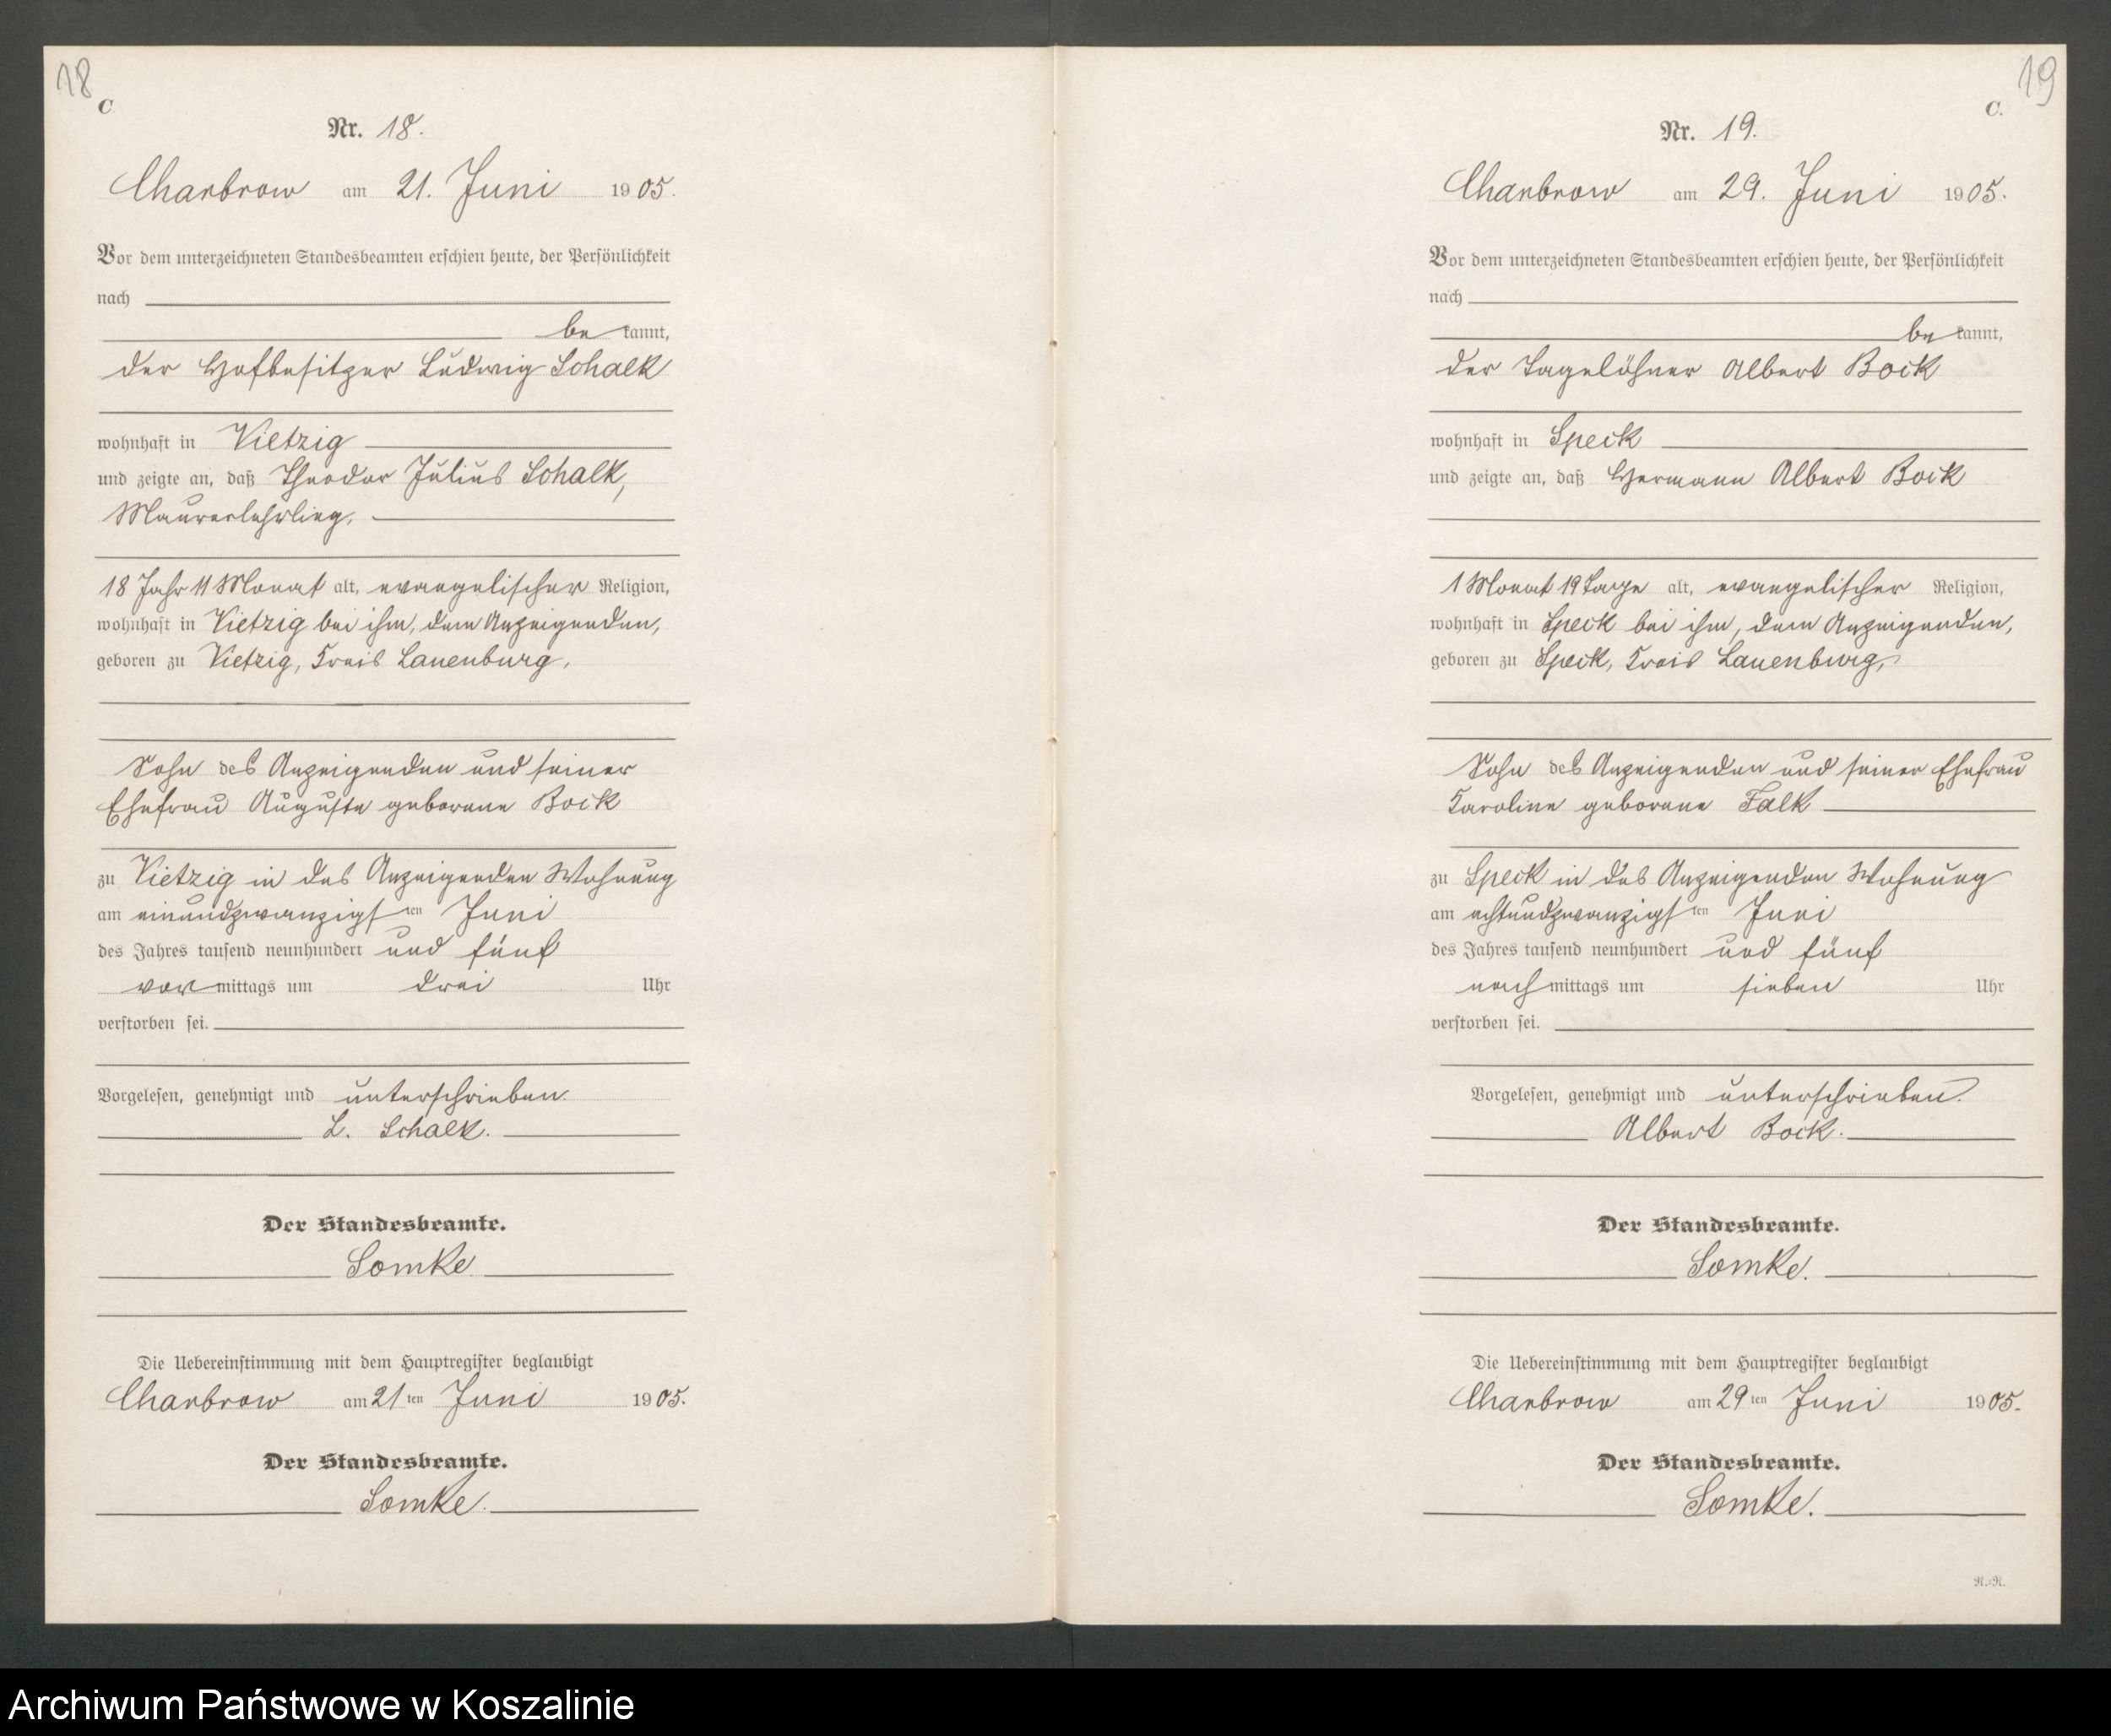 18
C
Nr. 18.
Charbrow am 21. Juni 1905.
Vor dem unterzeichneten Standesbeamten erschien heute, der Persönlichkeit
nach
be kannt,
der Hofbesitzer Ludwig Schalk
wohnhaft in Vietzig
und zeigte an, daß Theodor Julius Schalk,
Maurerlehrling,
18 Jahr 11 Monat alt, evangelischer Religion,
wohnhaft in Vietzig bei ihm, dem Anzeigenden,
geboren zu Vietzig, Kreis Lauenburg,
Sohn des Anzeigenden und seiner
Ehefrau Auguste geborene Bock
zu Vietzig in des Anzeigenden Wohnung
am einundzwanzigsten Juni
des Jahres tausend neunhundert und fünf
vormittags um drei Uhr
verstorben sei.
Vorgelesen, genehmigt und unterschrieben.
L. Schalk.
Der Standesbeamte.
Somke
Die Uebereinstimmung mit dem Hauptregister beglaubigt
Charbrow am 21ten Juni 1905.
Der Standesbeamte.
Somke.
19
C.
Nr. 19.
Charbrow am 29. Juni 1905.
Vor dem unterzeichneten Standesbeamten erschien heute, der Persönlichkeit
nach
be kannt,
der Tagelöhner Albert Bock
wohnhaft in Speck
und zeigte an, daß Hermann Albert Bock
1 Monat 19 Tage alt, evangelischer Religion,
wohnhaft in Speck bei ihm, dem Anzeigenden,
geboren zu Speck, Kreis Lauenburg,
Sohn des Anzeigenden und seiner Ehefrau
Karoline geborene Falk
zu Speck in des Anzeigenden Wohnung
am achtundzwanzigsten Juni
des Jahres tausend neunhundert und fünf
nachmittags um sieben Uhr
verstorben sei.
Vorgelesen, genehmigt und unterschrieben.
Albert Bock.
Der Standesbeamte.
Somke.
Die Uebereinstimmung mit dem Hauptregister beglaubigt
Charbrow am 29ten Juni 1905.
Der Standesbeamte.
Somke.
N.=N.
Archiwum Państwowe w Koszalinie